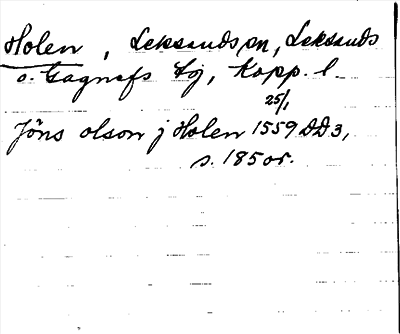 Holen, Leksands sn, Leksands
o. Gagnefs tg, Kopp. l.
25/1
Jöns olson j Holen 1559 DD3,
s. 185 or.